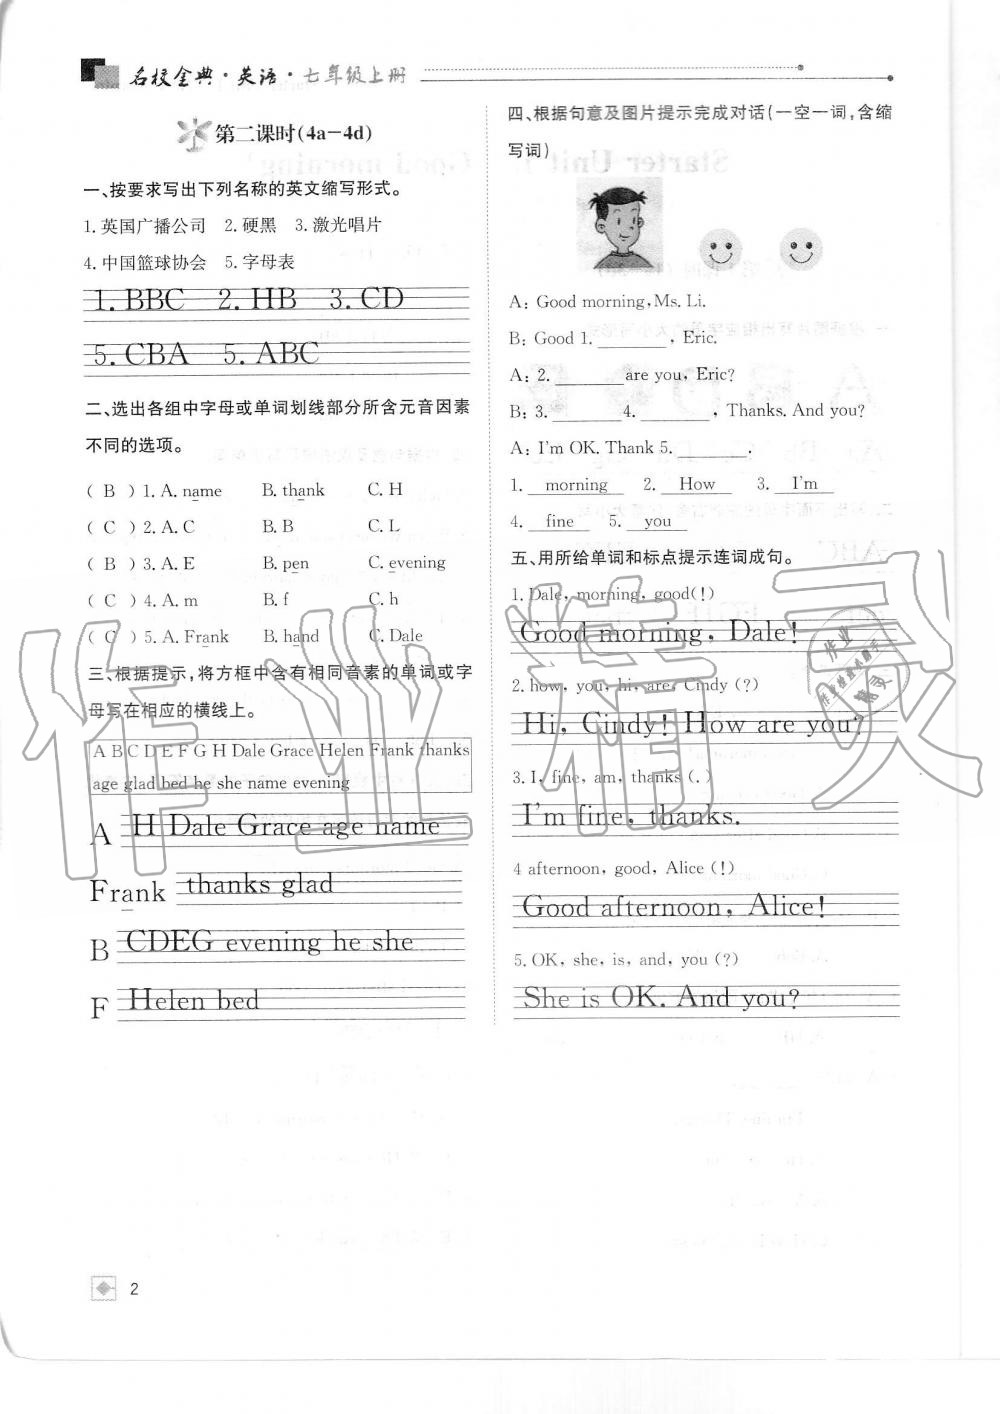 名校金典·英语·七年级上册
第二课时(4a-4d)
一、按要求写出下列名称的英文缩写形式。
1. 英国广播公司 2. 硬黑 3. 激光唱片
4. 中国篮球协会 5. 字母表
1. BBC 2. HB 3. CD
5. CBA 5. ABC
二、选出各组中字母或单词划线部分所含元音因素
不同的选项。
( B ) 1. A. name B. thank C. H
( C ) 2. A. C B. B C. L
( B ) 3. A. E B. pen C. evening
( C ) 4. A. m B. f C. h
( C ) 5. A. Frank B. hand C. Dale
三、根据提示,将方框中含有相同音素的单词或字
母写在相应的横线上。
A B C D E F G H Dale Grace Helen Frank thanks
age glad bed he she name evening
A H Dale Grace age name
Frank thanks glad
B CDEG evening he she
F Helen bed
2
四、根据句意及图片提示完成对话(一空一词,含缩
写词)
A: Good morning, Ms. Li.
B: Good 1. ______, Eric.
A: 2. ______ are you, Eric?
B: 3. ______ 4. ______, Thanks. And you?
A: I'm OK. Thank 5. ______.
1. morning 2. How 3. I'm
4. fine 5. you
五、用所给单词和标点提示连词成句。
1. Dale, morning, good(!)
Good morning, Dale!
2. how, you, hi, are, Cindy (?)
Hi, Cindy! How are you?
3. I, fine, am, thanks (.)
I'm fine, thanks.
4 afternoon, good, Alice (!)
Good afternoon, Alice!
5. OK, she, is, and, you (?)
She is OK. And you?
作业精灵